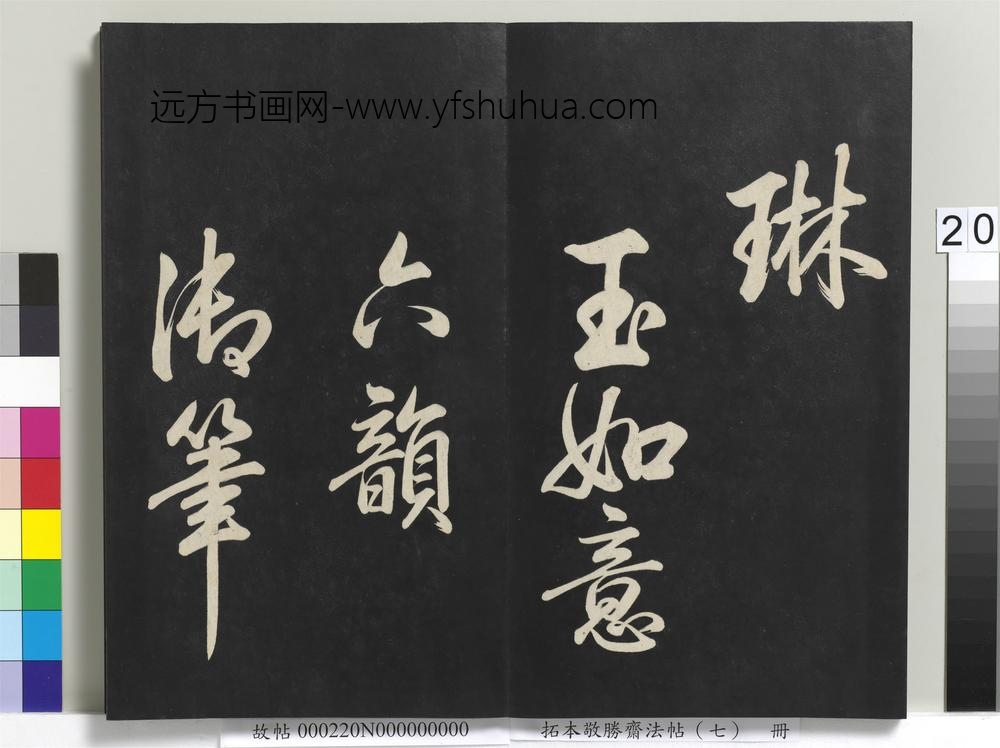 远方书画网-www.yfshuhua.com
琳
玉如意
六韻
御筆
20
故帖 000220N000000000
拓本敬勝齋法帖（七） 冊